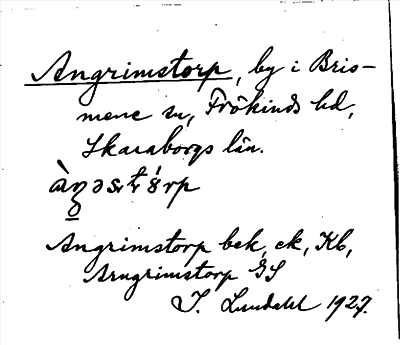 Angrimstorp, by i Bris-
mene sn, Frökinds hd,
Skaraborgs län.
Angrimstorp bek, ek, Kb,
Arngrimstorp GS
I. Lundahl 1927.